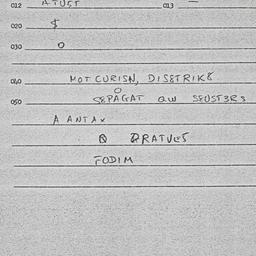 012 ATUST 013
020 $
030 O
040 MOTCURISN, DISETRIK8
O
050 SEPAGAT QW SEUST3R3
A ANTAX
Q QRATVES
FODIM